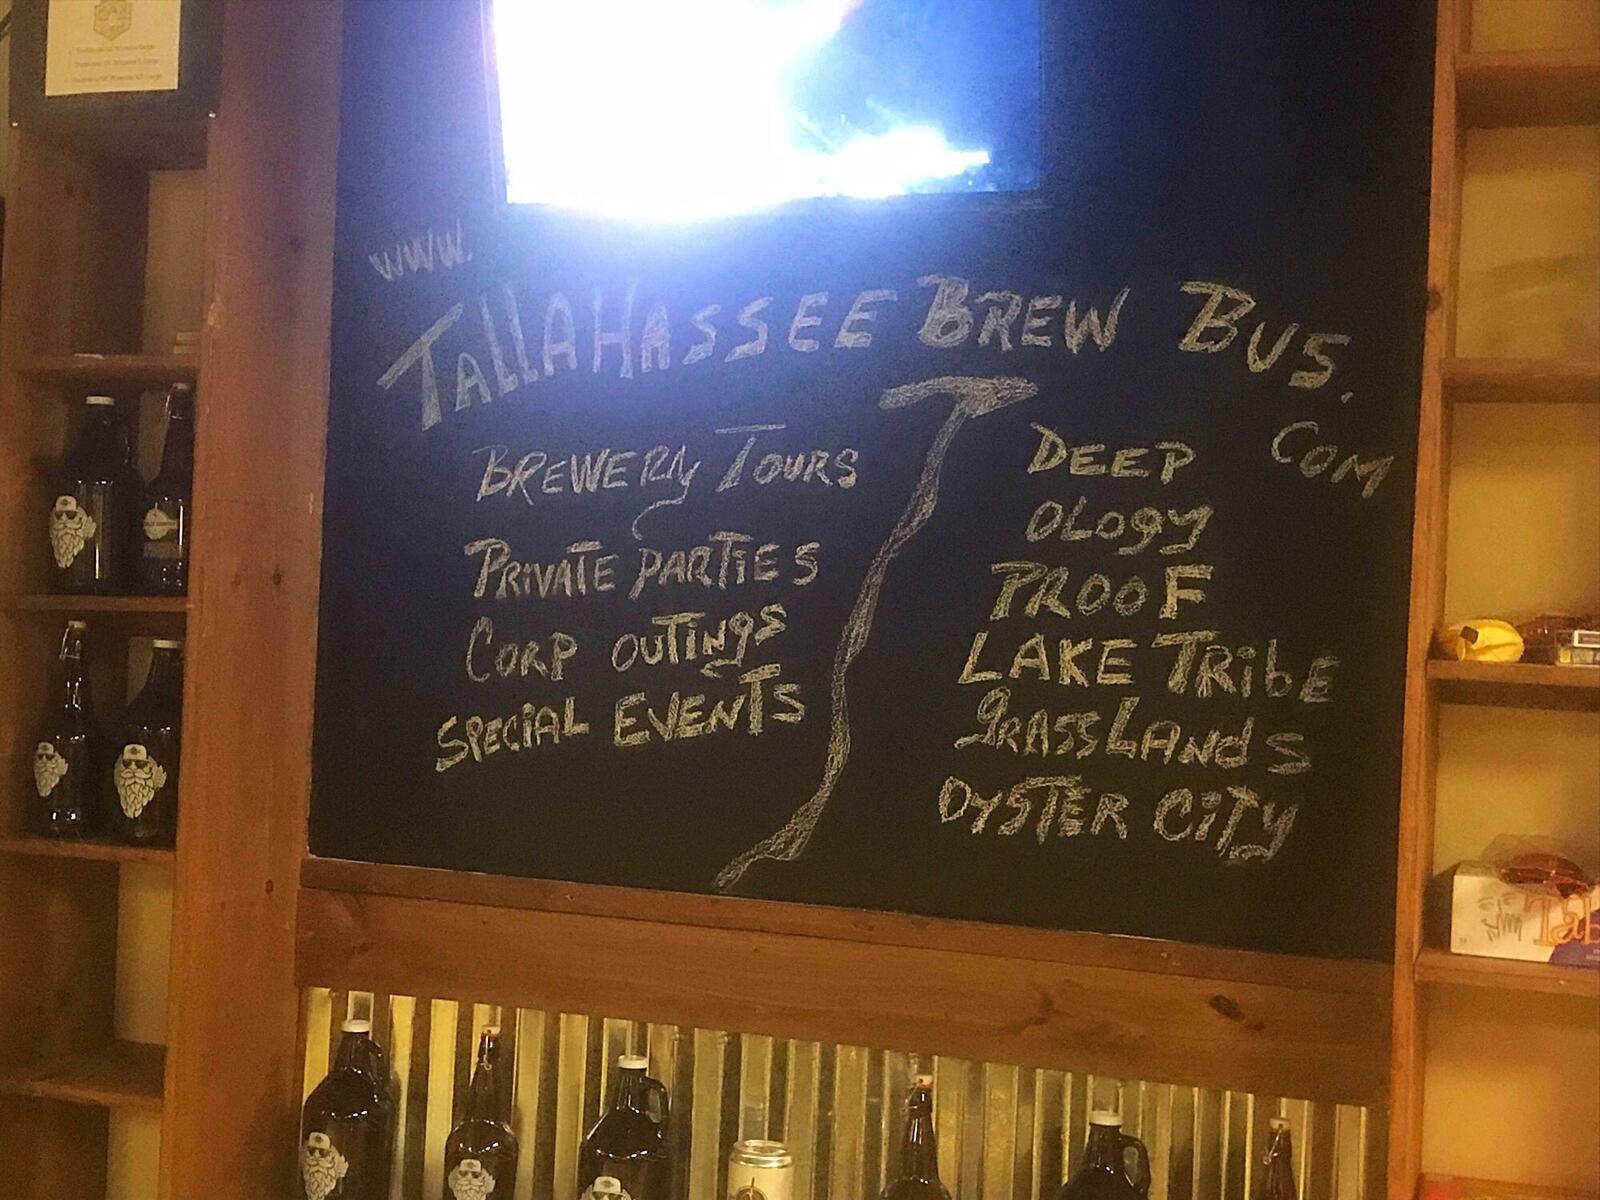 www.
TALLAHASSEE BREW BUS.
COM
BREWERy TOURS
PRiVATE PARTiES
CORP OUTiNgS
SPECiAL EVENTS
DEEP
OLOgy
PROOF
LAKE TRibE
gRASSLANdS
OYSTER CiTy
Tab